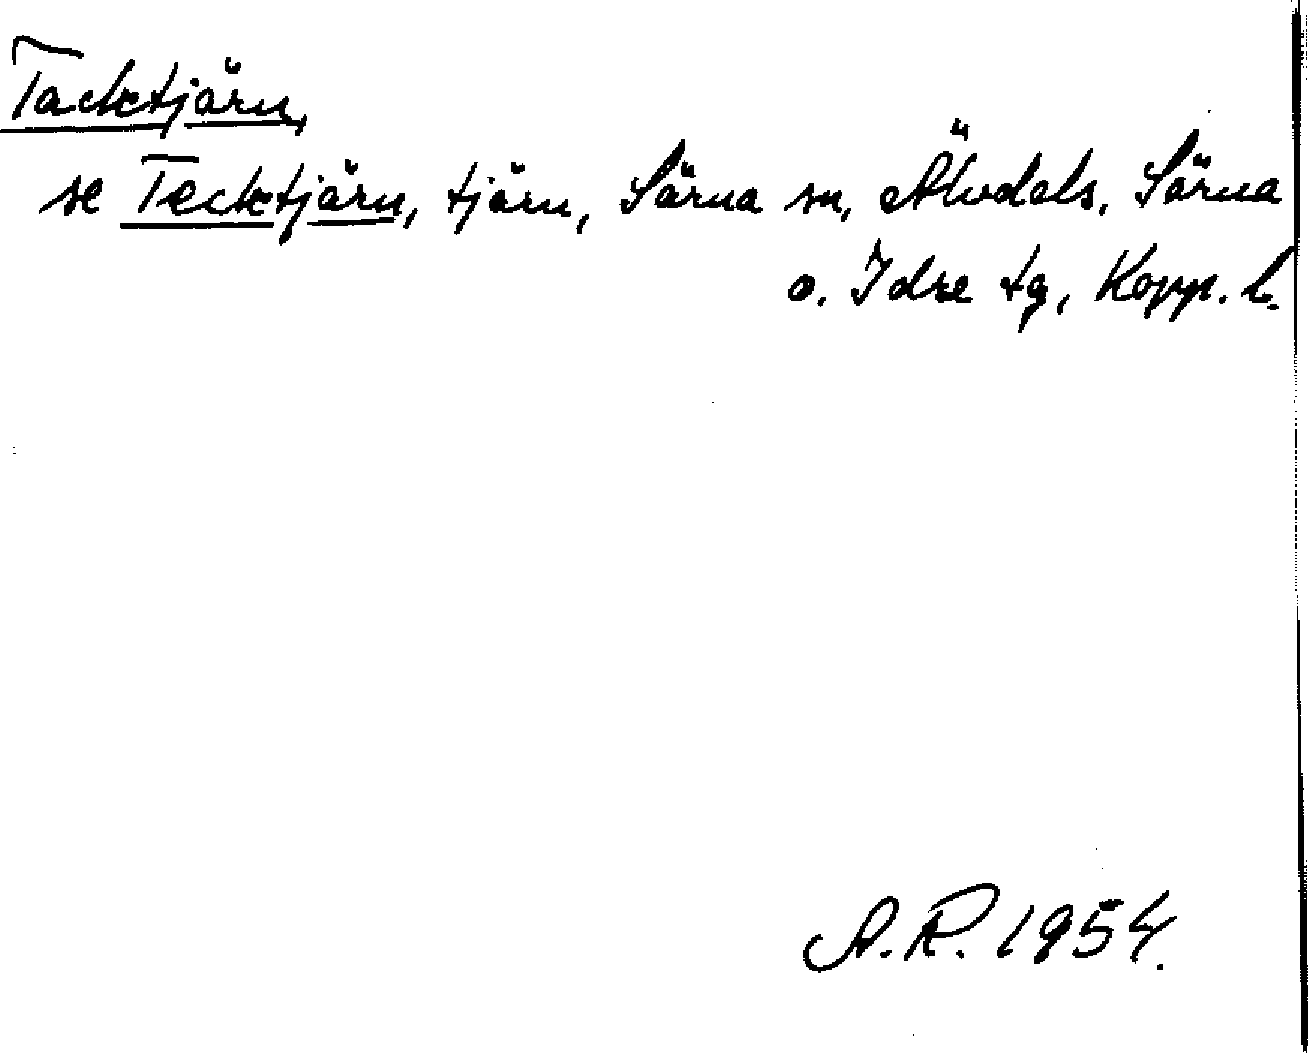 Tacktjärn,
se Tecktjärn, tjärn, Särna sn, Älvdals, Särna
o. Idre tg, Kopp. l.
A.R. 1954.